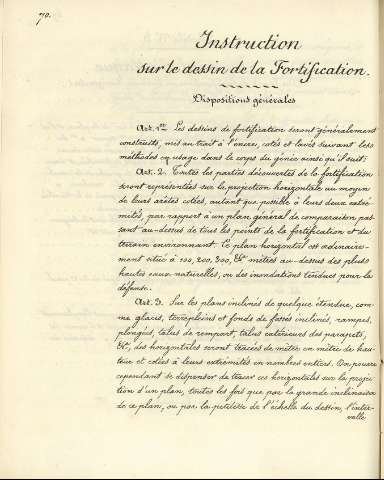 70.
Instruction
sur le dessin de la Fortification.
Dispositions générales
Art. 1er Les dessins de fortification seront généralement
construits, mis au trait à l'encre, cotés et lavés suivant les
méthodes en usage dans le corps du génie ainsi qu'il suit:
Art. 2. Toutes les parties découvertes de la fortification
seront représentées sur la projection horizontale au moyen
de leurs arêtes cotées, autant que possible à leurs deux extré-
mités, par rapport à un plan général de comparaison pas-
sant au-dessus de tous les points de la fortification et du
terrain environnant. Ce plan horizontal est ordinaire-
ment situé à 100, 200, 300, &a mètres au-dessus des plus
hautes eaux naturelles, ou des inondations tendues pour la
défense.
Art. 3. Sur les plans inclinés de quelque étendue, com-
me glacis, terrepleins et fonds de fossés inclinés, rampes,
plongées, talus de rempart, talus extérieurs des parapets,
&a, des horizontales seront tracées de mètre en mètre de hau-
teur et cotées à leurs extrémités en nombres entiers. On pourra
cependant se dispenser de tracer ces horizontales sur la projec-
tion d'un plan, toutes les fois que par la grande inclinaison
de ce plan, ou par la petitesse de l'échelle du dessin, l'inter-
valle